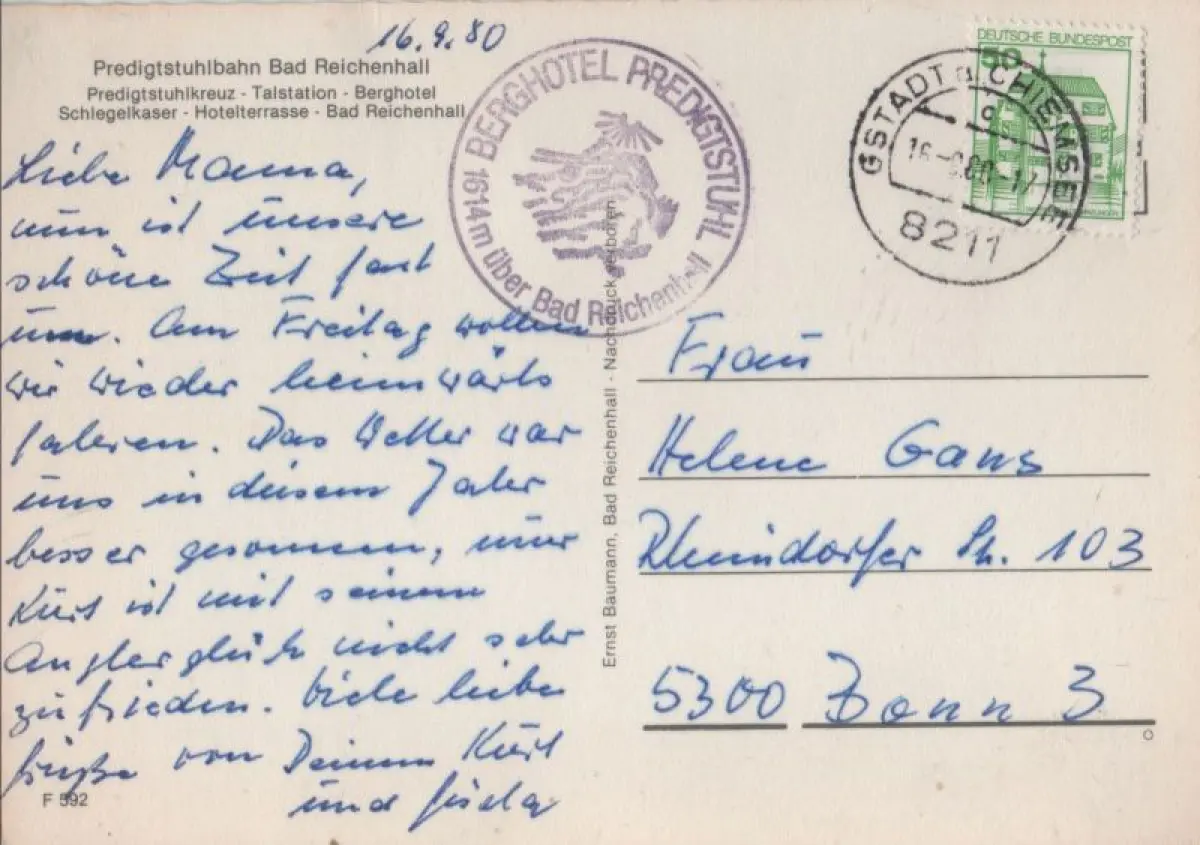 16.9.80
Predigtstuhlbahn Bad Reichenhall
Predigtstuhlkreuz - Talstation - Berghotel
Schlegelkaser - Hotelterrasse - Bad Reichenhall
Liebe Mama,
nun ist unsere
schöne Zeit fast
um. Am Freitag wollen
wir wieder heimwärts
fahren. Das Wetter war
uns in diesem Jahr
besser gesonnen, nur
Kurt ist mit seinem
Anglerglück nicht sehr
zufrieden. Viele liebe
Grüße von Deinem Kurt
und Gisela
F 592
BERGHOTEL PREDIGTSTUHL
1614 m über Bad Reichenhall
Ernst Baumann, Bad Reichenhall - Nachdruck verboten
DEUTSCHE BUNDESPOST
50
GSTADT a. CHIEMSEE
16.-9.80-17
8211
Frau
Helene Gans
Rheindorfer Str. 103
5300 Bonn 3